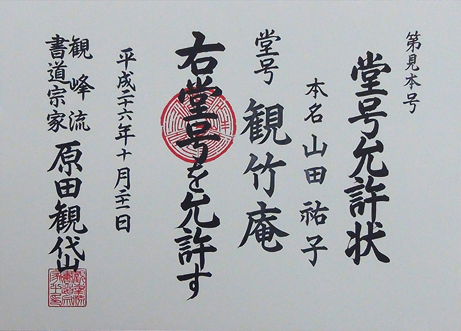 第見本号
堂号允許状
本名 山田祐子
堂号 観竹庵
右堂号を允許す
平成二十六年十月二十一日
観峰流
書道宗家 原田観岱山